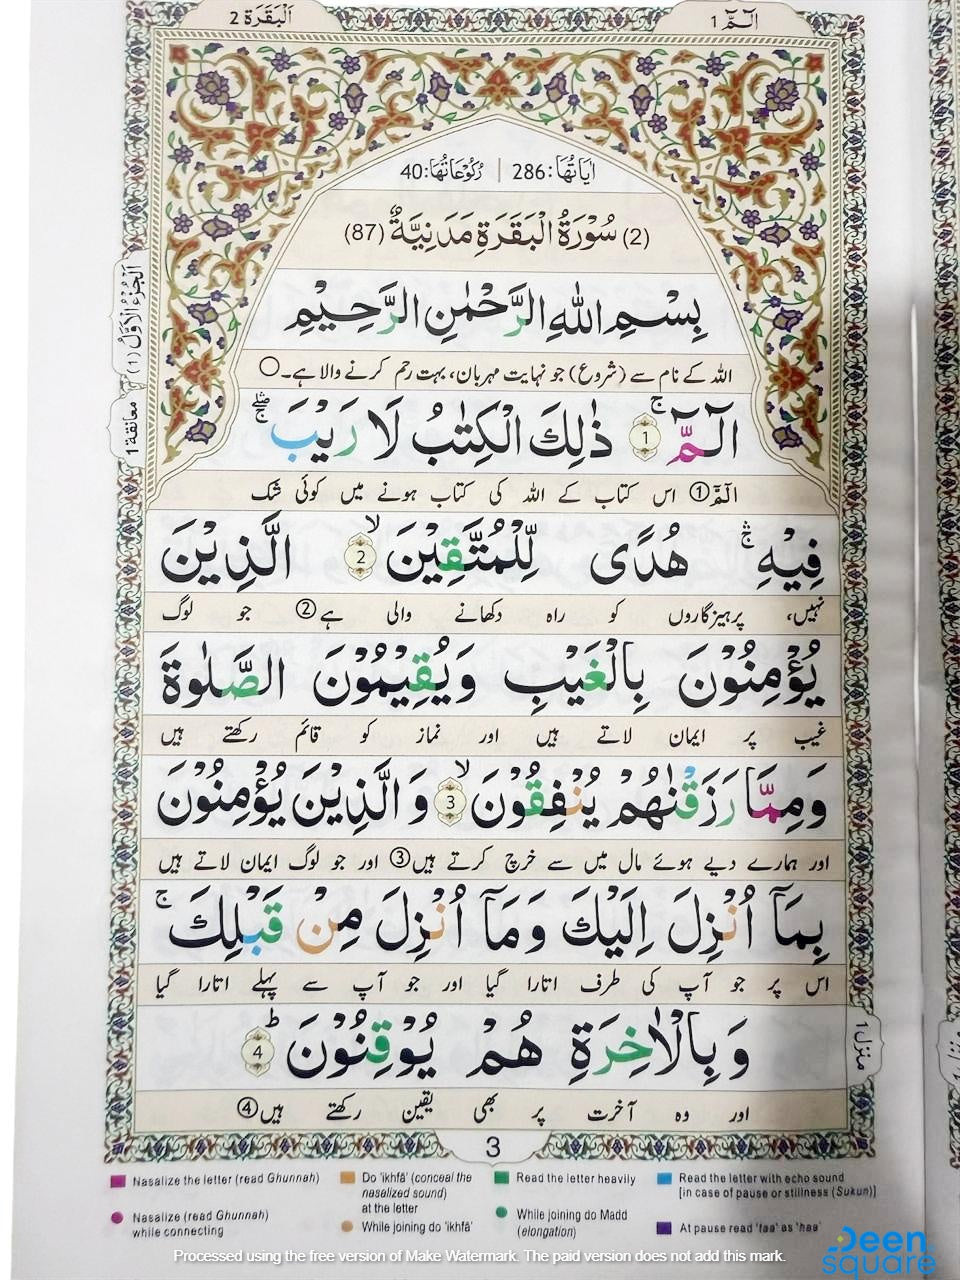 الٓمّٓ 1
اَلْبَقَرَة 2
اٰيَاتُهَا: 286 | رُكُوْعَاتُهَا: 40
(2) سُوْرَةُ الْبَقَرَةِ مَدَنِيَّةٌ (87)
بِسْمِ اللهِ الرَّحْمٰنِ الرَّحِيْمِ
اللہ کے نام سے (شروع) جو نہایت مہربان، بہت رحم کرنے والا ہے۔○
الٓمّٓ ۚ 1 ذٰلِكَ الْكِتٰبُ لَا رَيْبَ ۛۖۚ
الٓمّٓ① اس کتاب کے اللہ کی کتاب ہونے میں کوئی شک
فِيْهِ ۛۚ هُدًى لِّلْمُتَّقِيْنَ ۙ 2 الَّذِيْنَ
نہیں، پرہیزگاروں کو راہ دکھانے والی ہے② جو لوگ
يُؤْمِنُوْنَ بِالْغَيْبِ وَيُقِيْمُوْنَ الصَّلٰوةَ
غیب پر ایمان لاتے ہیں اور نماز کو قائم رکھتے ہیں
وَمِمَّا رَزَقْنٰهُمْ يُنْفِقُوْنَ ۙ 3 وَالَّذِيْنَ يُؤْمِنُوْنَ
اور ہمارے دیے ہوئے مال میں سے خرچ کرتے ہیں③ اور جو لوگ ایمان لاتے ہیں
بِمَآ اُنْزِلَ اِلَيْكَ وَمَآ اُنْزِلَ مِنْ قَبْلِكَ ۚ
اس پر جو آپ کی طرف اتارا گیا اور جو آپ سے پہلے اتارا گیا
وَبِالْاٰخِرَةِ هُمْ يُوْقِنُوْنَ ؕ 4
اور وہ آخرت پر بھی یقین رکھتے ہیں④
اَلْجُزْءُ الْاَوَّلُ (1)
معانقة 1
منزل 1
3
Nasalize the letter (read Ghunnah)
Nasalize (read Ghunnah)
while connecting
Do 'ikhfā' (conceal the
nasalized sound)
at the letter
While joining do 'ikhfā'
Read the letter heavily
While joining do Madd
(elongation)
Read the letter with echo sound
[in case of pause or stillness (Sukun)]
At pause read 'taa' as 'haa'
Processed using the free version of Make Watermark. The paid version does not add this mark.
Deen
square